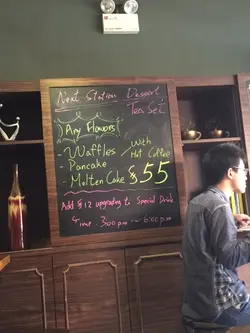 Next Station Dessert
Tea Set
Any Flavors
- Waffles
- Pancake
- Molten Cake
With
Hot Coffee
$55
Add $12 upgrading to Special Drink
Time: 3:00 pm ~ 6:00 pm